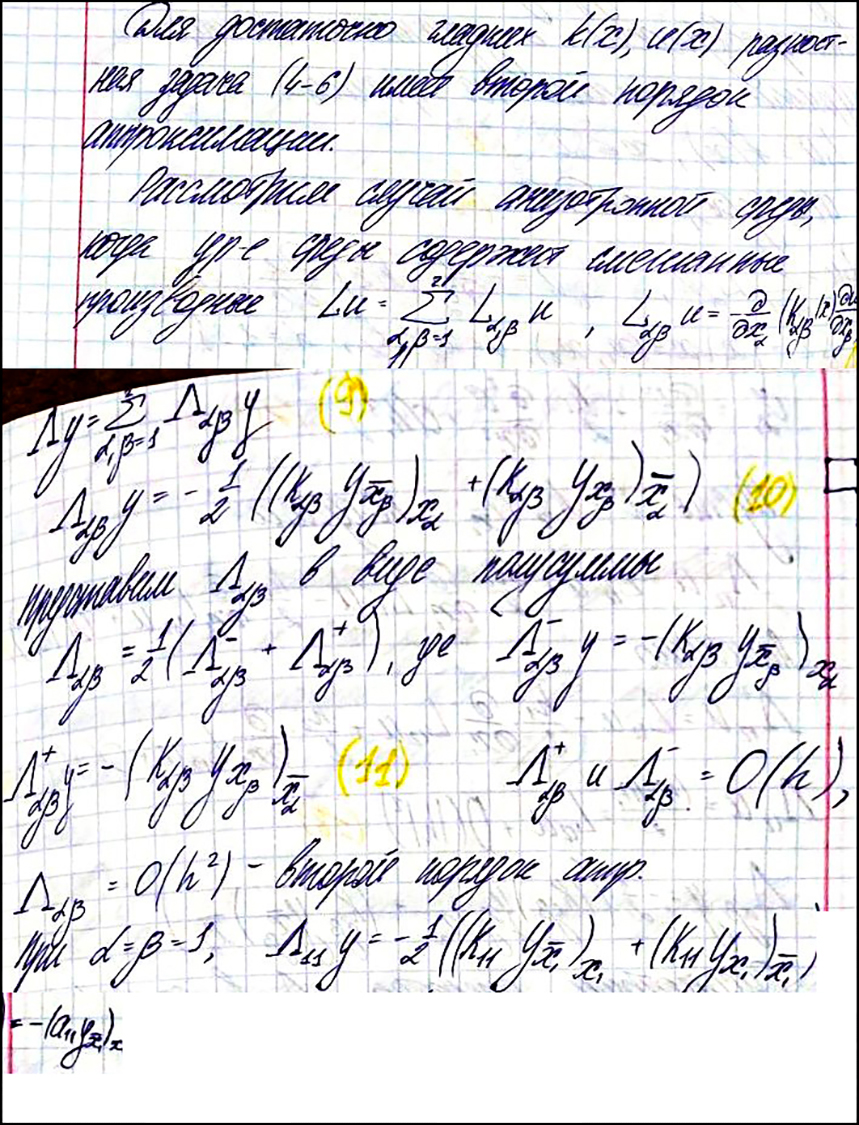 Для достаточно гладких k(x), u(x) разност-
ная задача (4-6) имеет второй порядок
аппроксимации.
Рассмотрим случай анизотропной среды,
когда ур-е среды содержит смешанные
производные Lu = ∑_{α,β=1}^{2} L_{αβ} u , L_{αβ} u = ∂/∂x_α (K_{αβ}(x) ∂u/∂x_β
Λy = ∑_{α,β=1}^{2} Λ_{αβ} y (9)
Λ_{αβ} y = - 1/2 ((K_{αβ} y_{x̄_β})_{x_α} + (K_{αβ} y_{x_β})_{x̄_α}) (10)
представим Λ_{αβ} в виде полусуммы
Λ_{αβ} = 1/2 (Λ⁻_{αβ} + Λ⁺_{αβ}), где Λ⁻_{αβ} y = -(K_{αβ} y_{x̄_β})_{x_α}
Λ⁺_{αβ} y = - (K_{αβ} y_{x_β})_{x̄_α} (11) Λ⁺_{αβ} и Λ⁻_{αβ} = O(h),
Λ_{αβ} = O(h²) - второй порядок аппр.
при α=β=1, Λ_{11} y = -1/2 ((K_{11} y_{x̄_1})_{x_1} + (K_{11} y_{x_1})_{x̄_1})
= -(a_{11} y_{x̄_1})_x